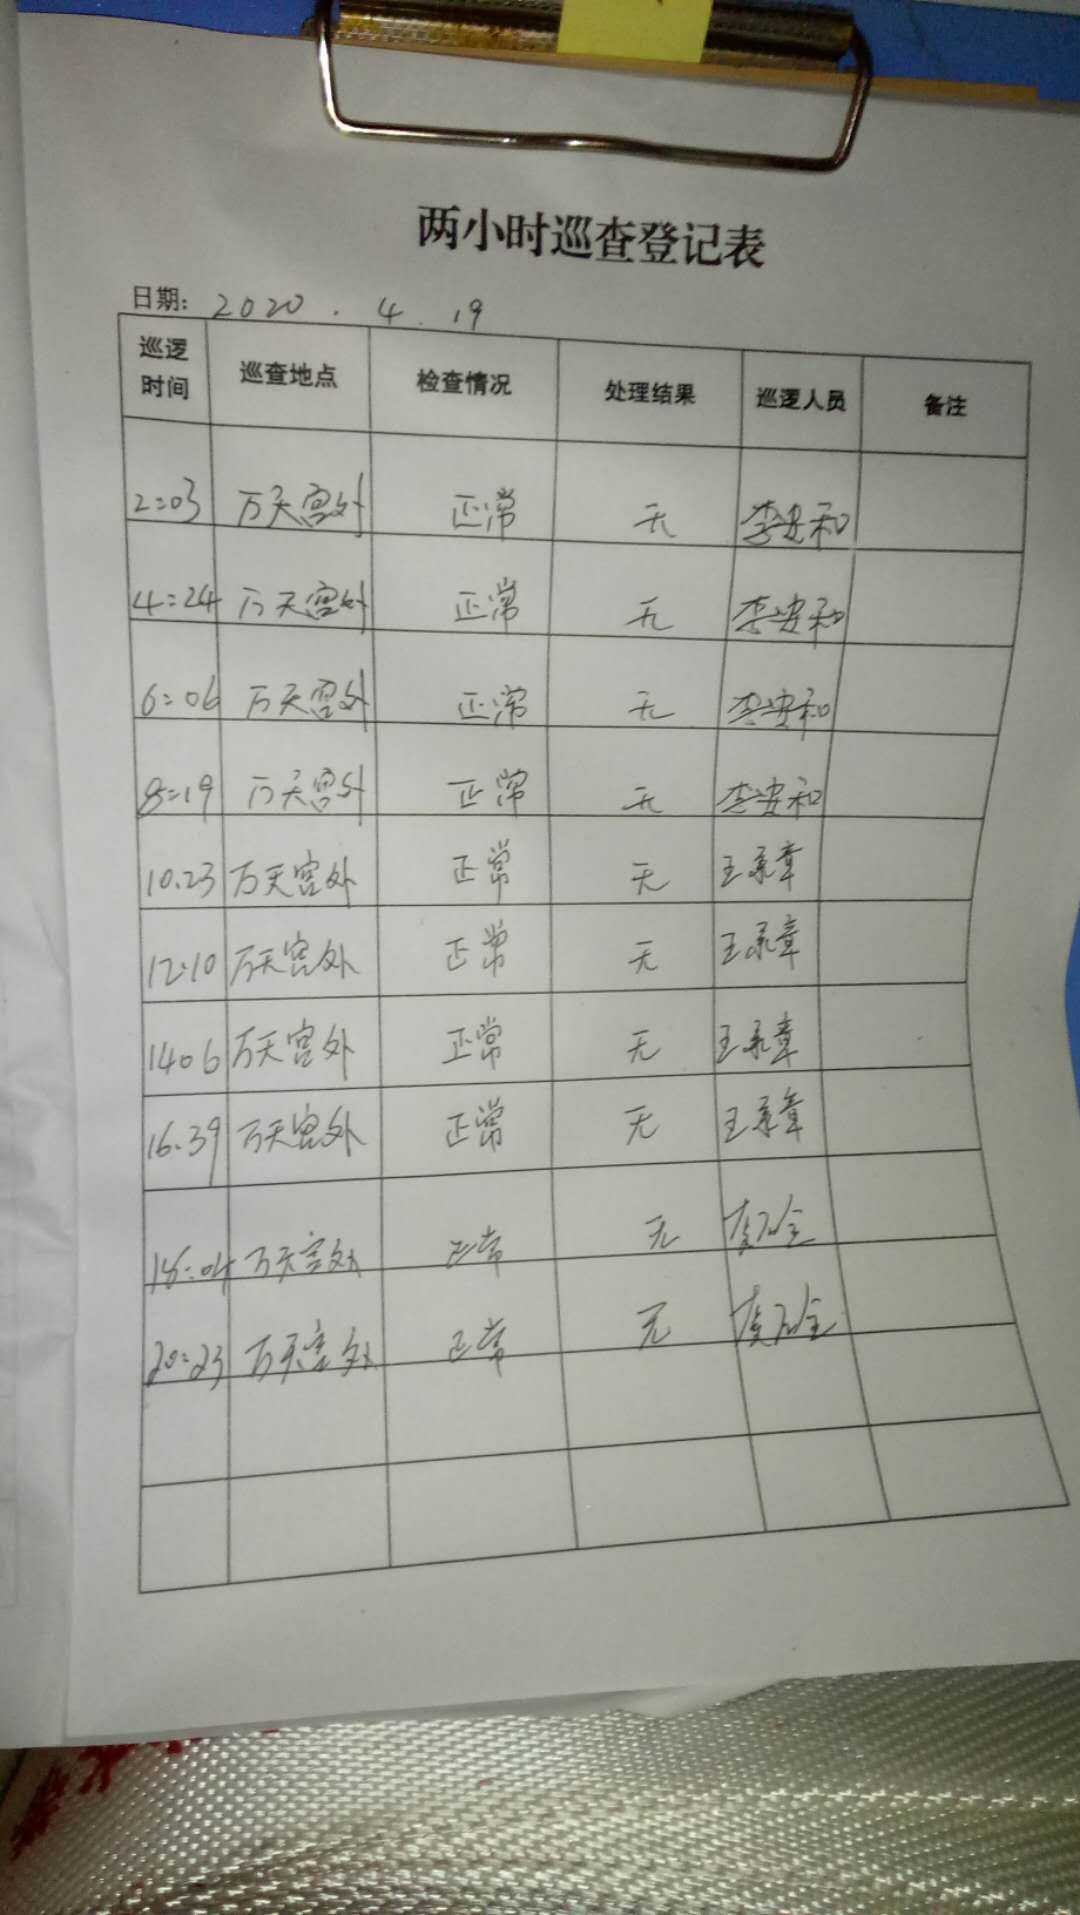 两小时巡查登记表
日期: 2020.4.19
巡逻时间 巡查地点 检查情况 处理结果 巡逻人员 备注
2:03 万天宫外 正常 无 李安和
4:24 万天宫外 正常 无 李安和
6:06 万天宫外 正常 无 李安和
8:19 万天宫外 正常 无 李安和
10.23 万天宫外 正常 无 王承章
12:10 万天宫外 正常 无 王承章
1406 万天宫外 正常 无 王承章
16.39 万天宫外 正常 无 王承章
18:04 万天宫外 正常 无
20:23 万天宫外 正常 无